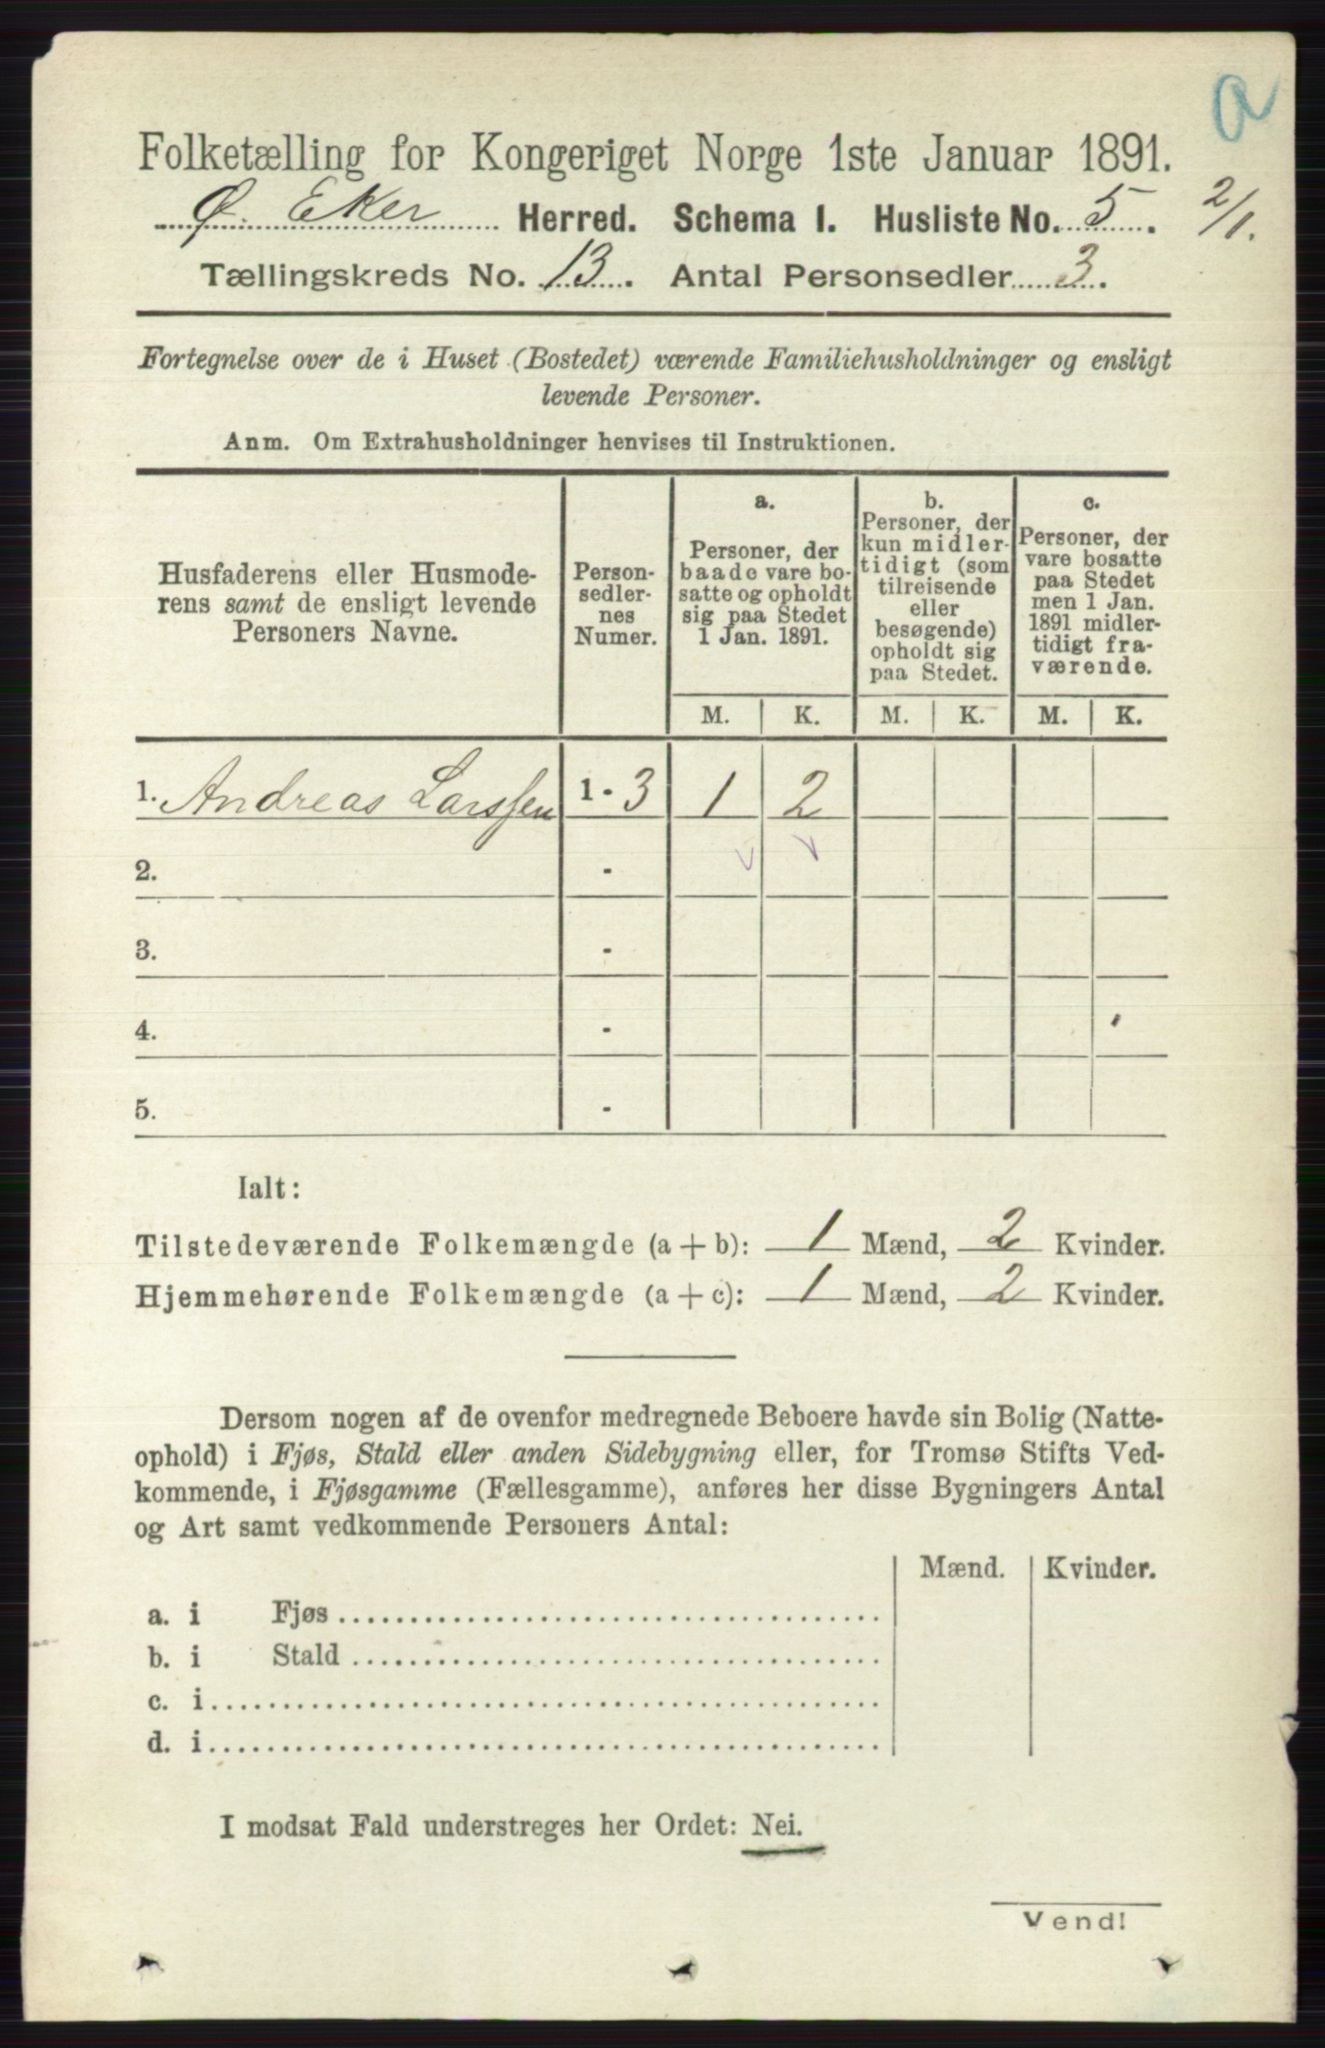 a
Folketælling for Kongeriget Norge 1ste Januar 1891.
Ø. Eker Herred. Schema I. Husliste No. 5. 2/1.
Tællingskreds No. 13. Antal Personsedler 3.
Fortegnelse over de i Huset (Bostedet) værende Familiehusholdninger og ensligt
levende Personer.
Anm. Om Extrahusholdninger henvises til Instruktionen.
Husfaderens eller Husmode-
rens samt de ensligt levende
Personers Navne.
Person-
sedler-
nes
Numer.
a.
Personer, der
baade vare bo-
satte og opholdt
sig paa Stedet
1 Jan. 1891.
b.
Personer, der
kun midler-
tidigt (som
tilreisende
eller
besøgende)
opholdt sig
paa Stedet.
c.
Personer, der
vare bosatte
paa Stedet
men 1 Jan.
1891 midler-
tidigt fra-
værende.
M. K. M. K. M. K.
1. Andreas Larssen 1 - 3 1 2
2. -
3. -
4. -
5. -
Ialt:
Tilstedeværende Folkemængde (a + b): 1 Mænd, 2 Kvinder.
Hjemmehørende Folkemængde (a + c): 1 Mænd, 2 Kvinder.
Dersom nogen af de ovenfor medregnede Beboere havde sin Bolig (Natte-
ophold) i Fjøs, Stald eller anden Sidebygning eller, for Tromsø Stifts Ved-
kommende, i Fjøsgamme (Fællesgamme), anføres her disse Bygningers Antal
og Art samt vedkommende Personers Antal:
Mænd. Kvinder.
a. i Fjøs
b. i Stald
c. i
d. i
I modsat Fald understreges her Ordet: Nei.
Vend!